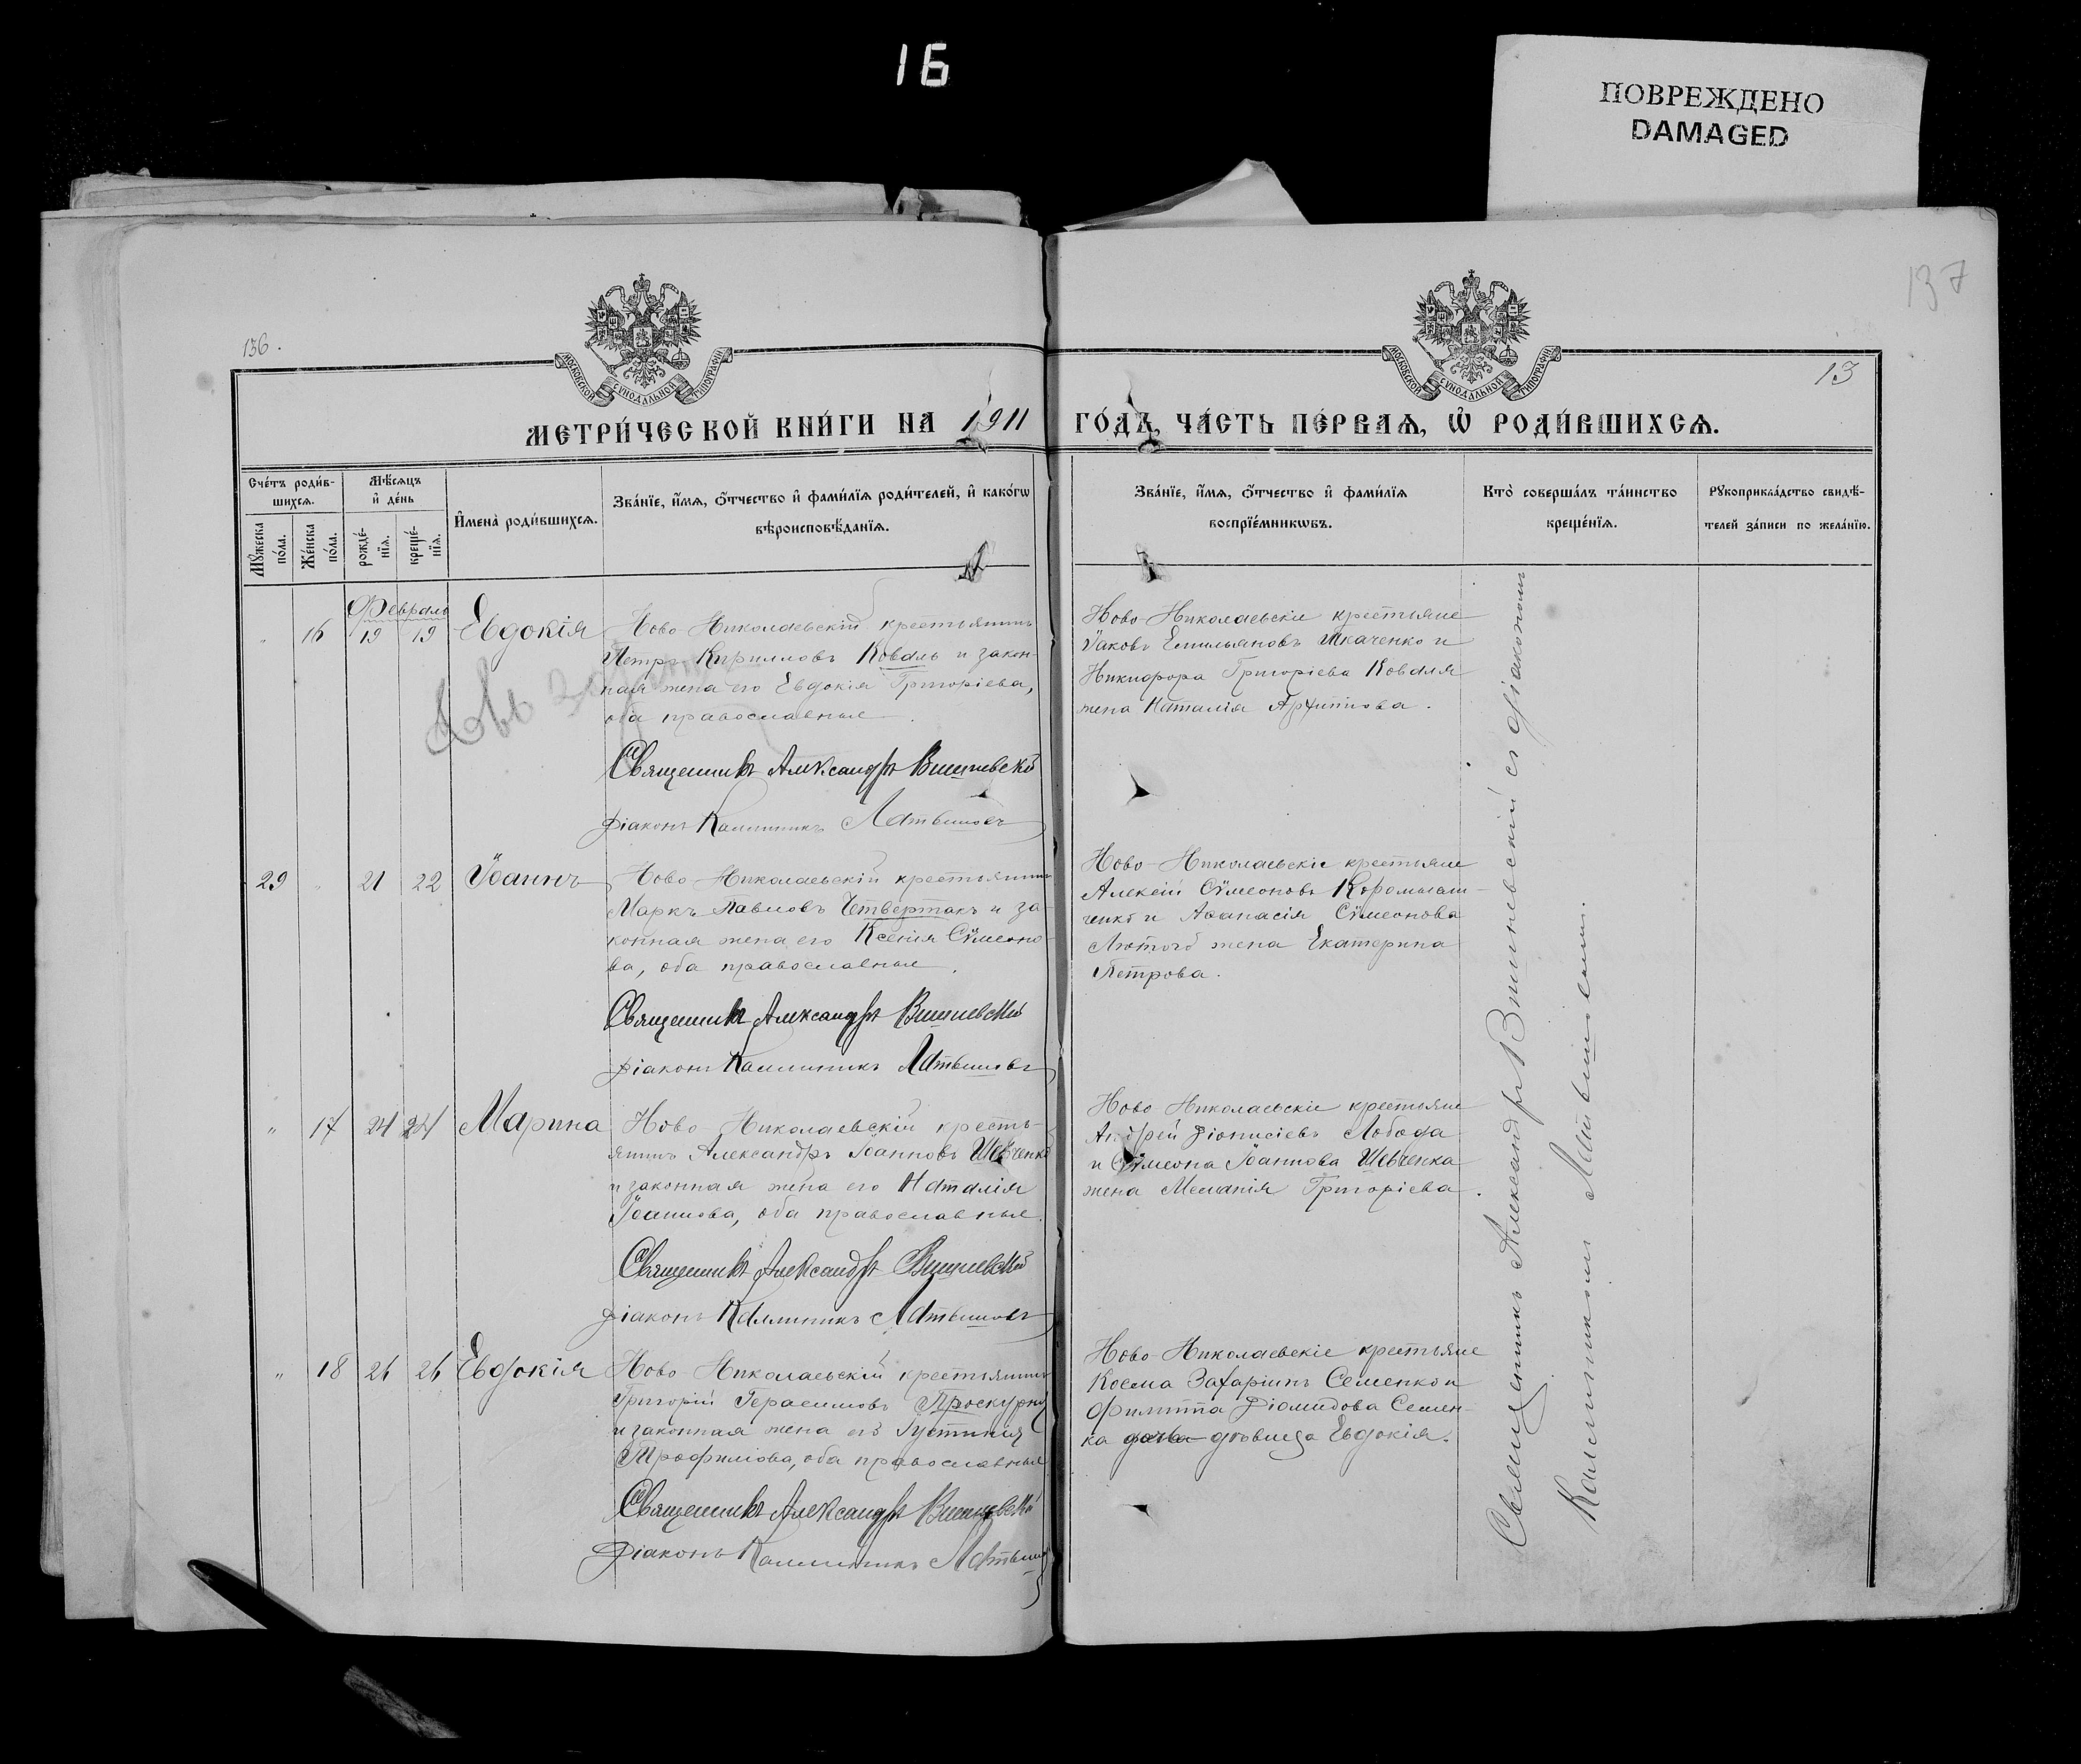 16
ПОВРЕЖДЕНО
DAMAGED
137
156.
13
МОСКОВСКОЙ СУНОДАЛЬНОЙ ТИПОГРАФІИ
МОСКОВСКОЙ СУНОДАЛЬНОЙ ТИПОГРАФІИ
МЕТРИ́ЧЕСКОЙ КНИ́ГИ НА 1911 ГО́ДЪ, ЧА́СТЬ ПЕ́РВАѦ, Ѡ҆ РОДИ́ВШИХСѦ.
Сче́тъ роди́в-
шихсѧ.
Мꙋ́жеска
по́ла.
Же́нска
по́ла.
Мѣ́сѧцъ
и҆ де́нь
рожде́-
нїѧ.
креще́-
нїѧ.
И҆мена̀ роди́вшихсѧ.
Зва́нїе, и҆́мѧ, ѻ҆́тчество и҆ фами́лїѧ роди́телей, и҆ како́гѡ
вѣроисповѣ́данїѧ.
Зва́нїе, и҆́мѧ, ѻ҆́тчество и҆ фами́лїѧ
воспрїе́мникѡвъ.
Кто̀ соверша́лъ та́инство
креще́нїѧ.
Рꙋкоприкла́дство свидѣ́-
телей за́писи по жела́нїю.
Февраль
" 16 19 19 Евдокія
Ново Николаевскій крестьянинъ
Петръ Кирилловъ Коваль и закон-
ная жена его Евдокія Григоріева,
оба православные.
Священникъ Александръ Вишневскій
Діаконъ Каллиникъ
Ново-Николаевскіе крестьяне
Іаковъ Емильяновъ Ткаченко и
Никифора Григоріева Коваля
жена Наталія
29 " 21 22 Іоаннъ
Ново-Николаевскій крестьянинъ
Маркъ Павловъ Четвертакъ и за-
конная жена его Ксенія Сѵмеоно-
ва, оба православные.
Священникъ Александръ Вишневскій
Діаконъ Каллиникъ
Ново-Николаевскіе крестьяне
Алексій Сѵмеоновъ
и Аѳанасія Сѵмеонова
Лютого жена Екатерина
Петрова.
" 17 24 24 Марина
Ново-Николаевскій кресть-
янинъ Александръ Іоанновъ Шевченко
и законная жена его Наталія
Іоаннова, оба православные.
Священникъ Александръ Вишневскій
Діаконъ Каллиникъ
Ново Николаевскіе крестьяне
Андрей Діонисіевъ Лобода
и Сѵмеона Іоаннова Шевченка
жена Меланія Григоріева.
" 18 26 26 Евдокія
Ново Николаевскій крестьянинъ
Григорій Герасимовъ
и законная жена его Іустинія
Трофимова, оба православные
Священникъ Александръ Вишневскій
Діаконъ Каллиникъ
Ново-Николаевскіе крестьяне
Косма Захаріинъ Семенко и
Филиппа Діомидова Семен-
ка дочь дѣвица Евдокія.
Священникъ Александръ Вишневскій съ діакономъ
Каллиникомъ